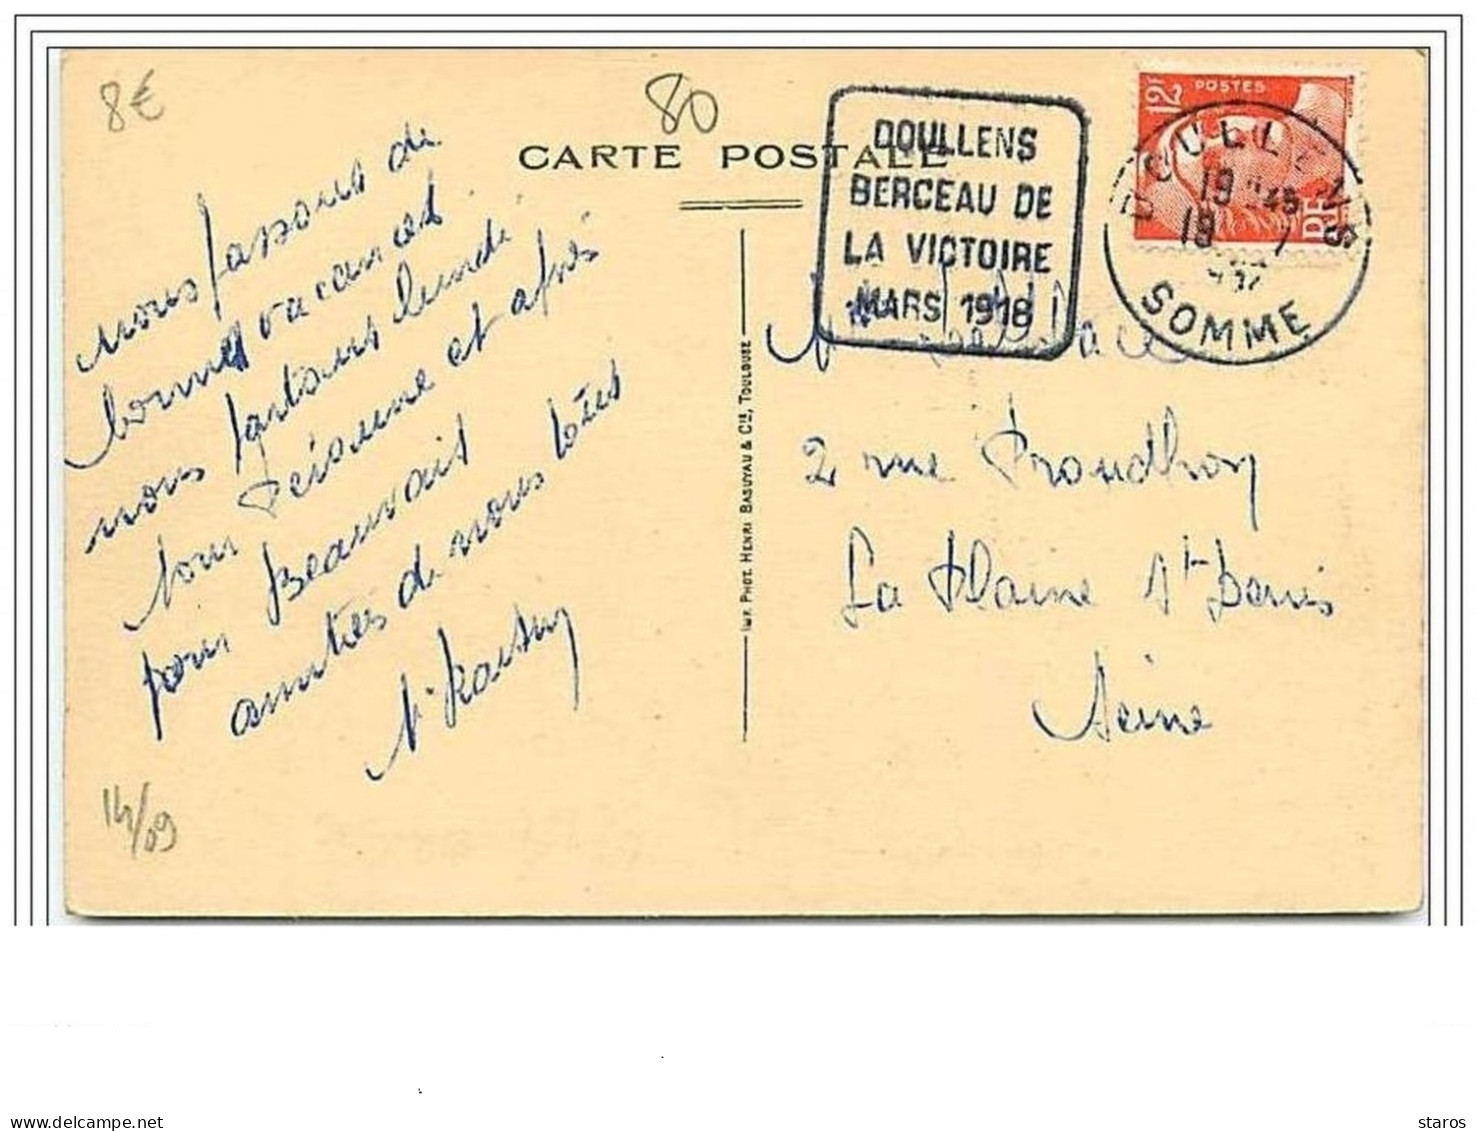 8€
80
CARTE POSTALE
DOULLENS
BERCEAU DE
LA VICTOIRE
MARS 1918
12F
POSTES
RF
DOULLENS
19
18 - 7
SOMME
nous passons de
bonnes vacances
nous partons lundi
pour Peronne et après
pour Beauvais
amitiés de nous tous
IMP. PHOT. HENRI BASUYAU & Cie, TOULOUSE
2 rue Proudhon
La Plaine St Denis
Seine
14/09
staros